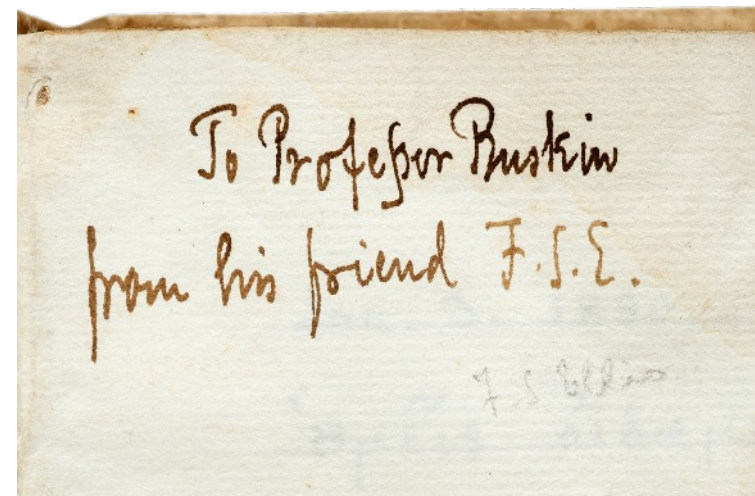 To Professor Ruskin
from his friend F.S.E.
F S Ellis